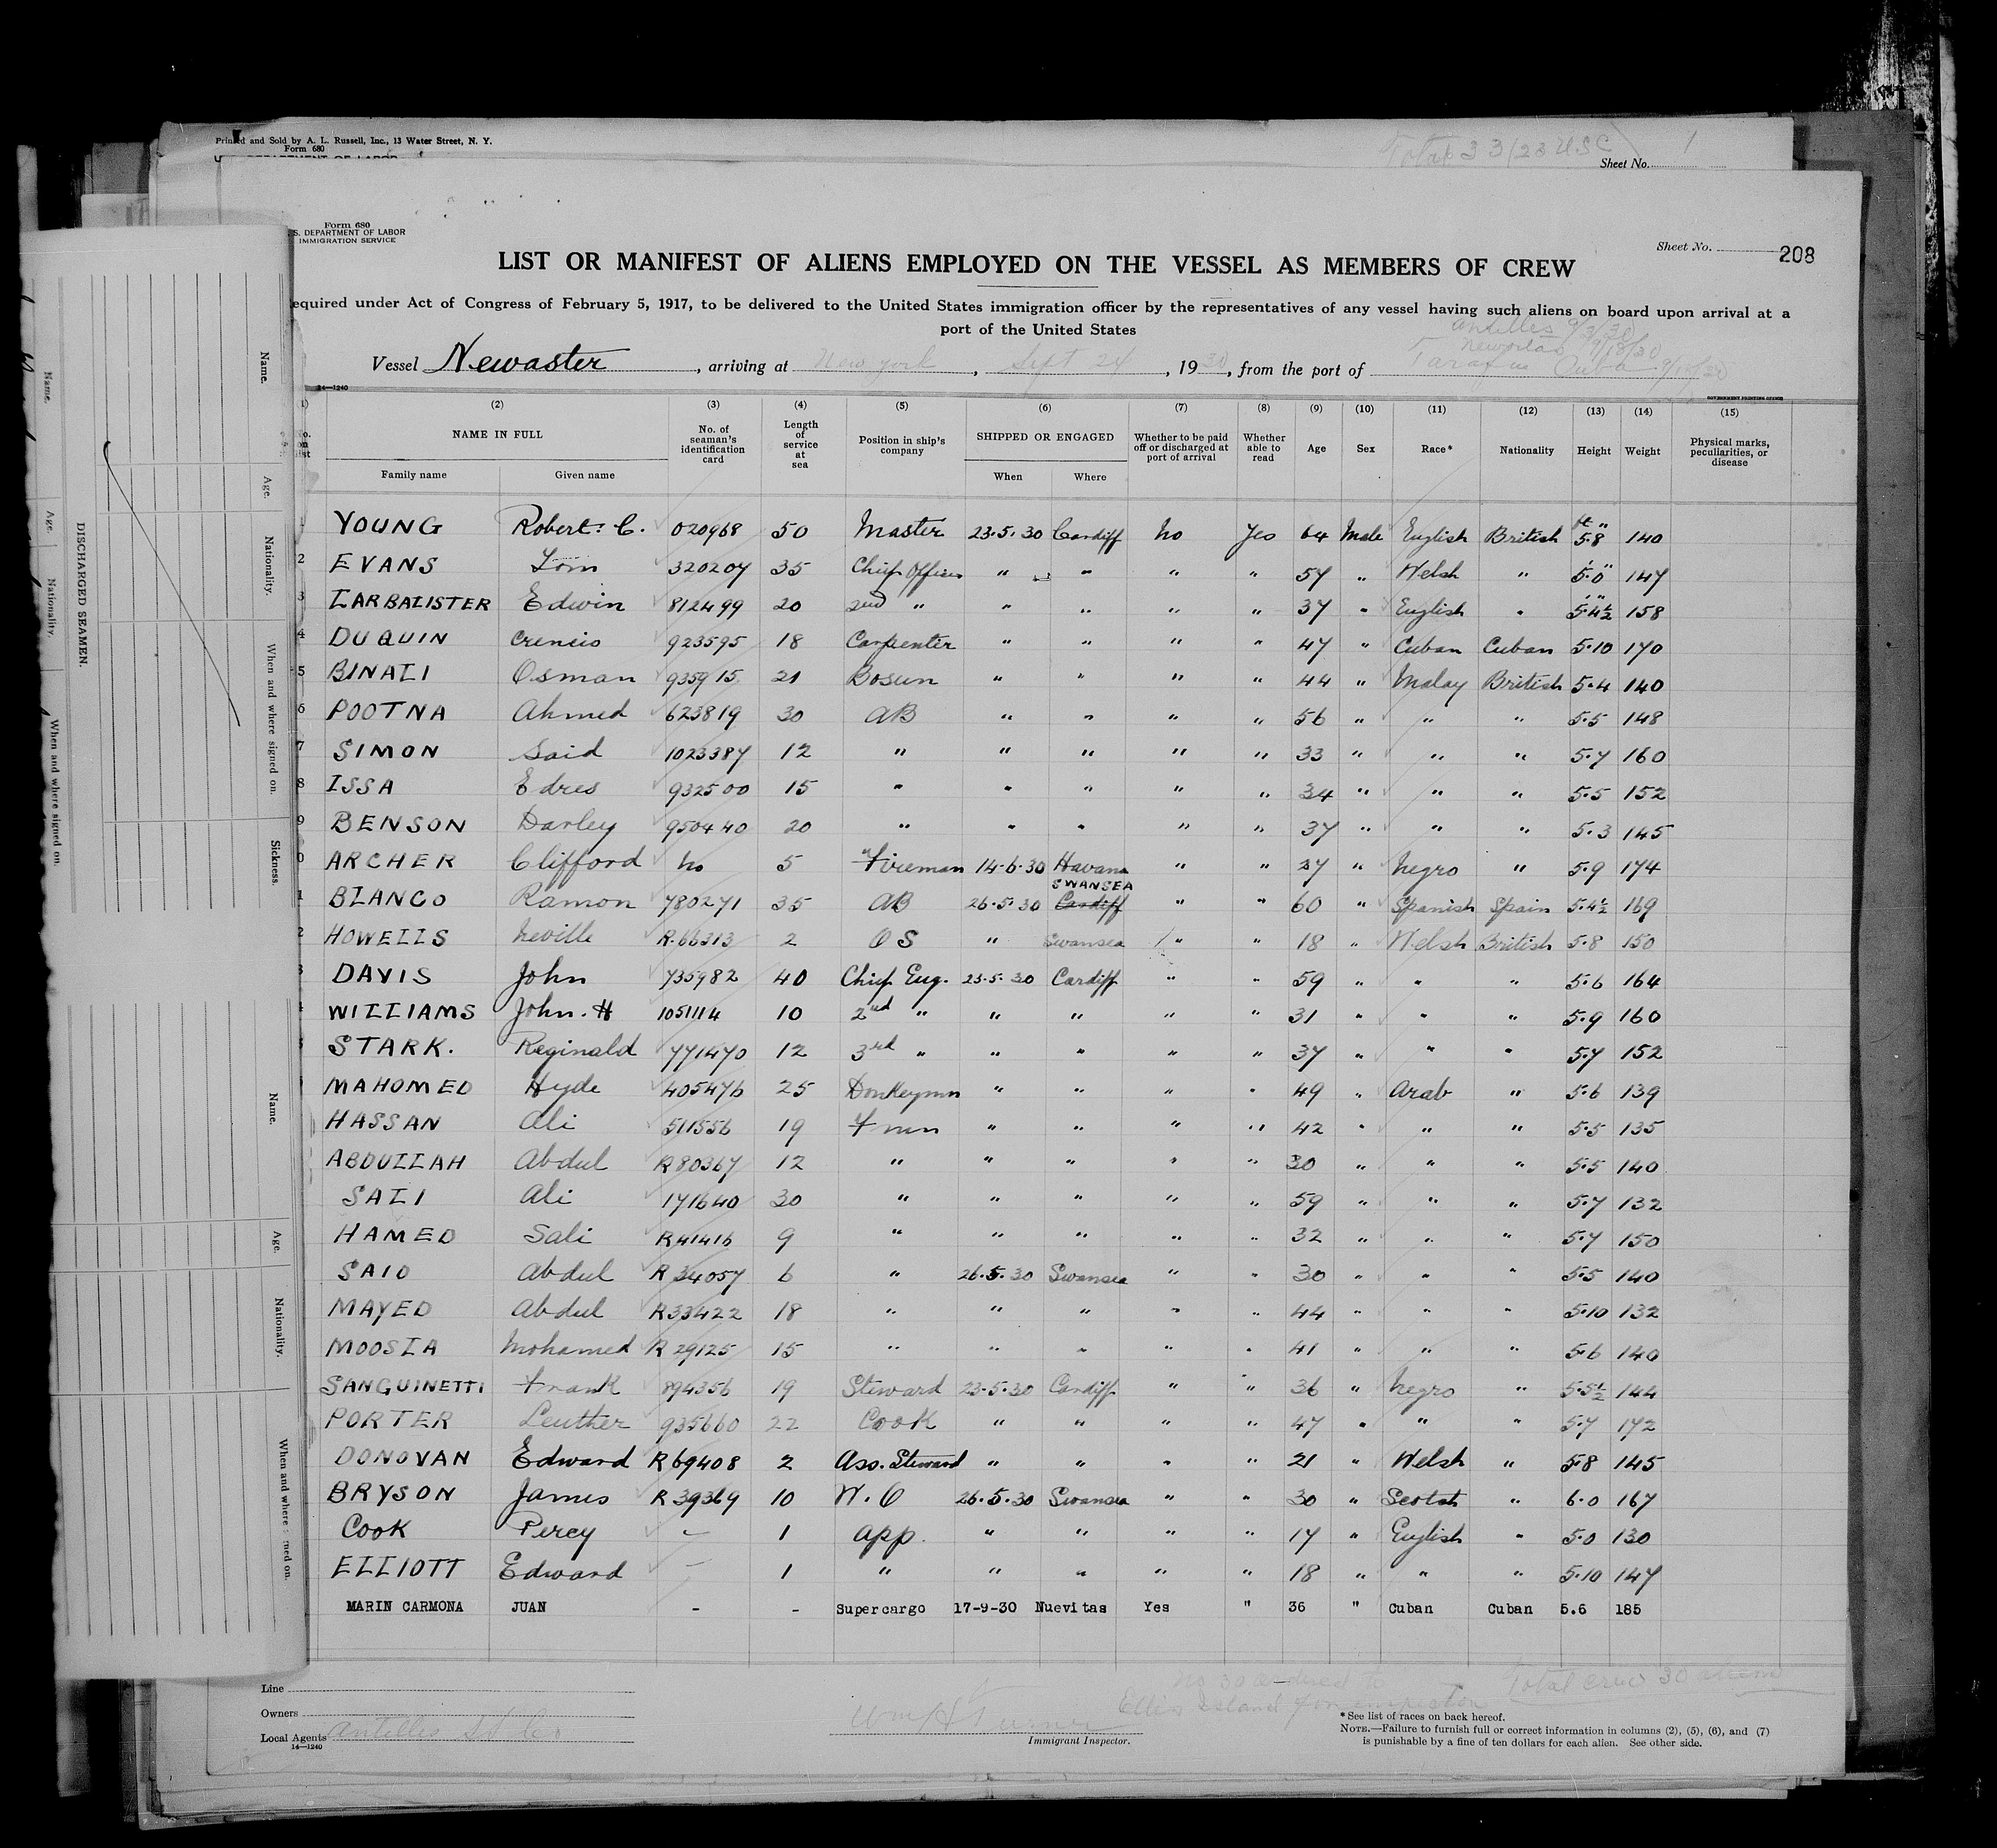 Printed and Sold by A. L. Russell, Inc., 13 Water Street, N. Y.
Form 680
Total 33/23 USC
Sheet No. 1
Form 680
S. DEPARTMENT OF LABOR
IMMIGRATION SERVICE
Sheet No. 208
LIST OR MANIFEST OF ALIENS EMPLOYED ON THE VESSEL AS MEMBERS OF CREW
equired under Act of Congress of February 5, 1917, to be delivered to the United States immigration officer by the representatives of any vessel having such aliens on board upon arrival at a
port of the United States
Antilles 9/3/30
9/18/30
Vessel Newaster, arriving at New York, Sept 24, 1930, from the port of Tarafa Cuba
14—1240
GOVERNMENT PRINTING OFFICE
(2) (3) (4) (5) (6) (7) (8) (9) (10) (11) (12) (13) (14) (15)
NAME IN FULL
Family name Given name
No. of seaman's identification card
Length of service at sea
Position in ship's company
SHIPPED OR ENGAGED
When Where
Whether to be paid off or discharged at port of arrival
Whether able to read
Age
Sex
Race*
Nationality
Height
Weight
Physical marks, peculiarities, or disease
YOUNG Robert: C. 020968 50 Master 23.5.30 Cardiff No Yes 64 Male English British ft " 5.8 140
2 EVANS Tom 320207 35 Chief Officer " " " " 57 " Welsh " 5.0 147
3 LARBALISTER Edwin 812499 20 2nd " " " " " 37 " English " 5.4½ 158
4 DUQUIN Crencio 923595 18 Carpenter " " " " 47 " Cuban Cuban 5.10 170
5 BINALI Osman 935915 21 Bosun " " " " 44 " Malay British 5.4 140
6 POOTNA Ahmed 623819 30 AB " " " " 56 " " " 5.5 148
7 SIMON Said 1023387 12 " " " " " 33 " " " 5.7 160
8 ISSA Edres 932500 15 " " " " " 34 " " " 5.5 152
9 BENSON Darley 950440 20 " " " " " 37 " " " 5.3 145
0 ARCHER Clifford No 5 Fireman 14.6.30 Havana " " 27 " Negro " 5.9 174
1 BLANCO Ramon 780271 35 AB 26.5.30 SWANSEA Cardiff " " 60 " Spanish Spain 5.4½ 169
2 HOWELLS Neville R.66313 2 OS " Swansea " " 18 " Welsh British 5.8 150
3 DAVIS John 735982 40 Chief Eng. 23.5.30 Cardiff " " 59 " " " 5.6 164
WILLIAMS John. H 1051114 10 2nd " " " " " 31 " " " 5.9 160
STARK. Reginald 771470 12 3rd " " " " " 37 " " " 5.7 152
MAHOMED Hyde 405476 25 Donkeymn " " " " 49 " Arab " 5.6 139
HASSAN Ali 511556 19 Fmn " " " " 42 " " " 5.5 135
ABDULLAH Abdul R80367 12 " " " " " 30 " " " 5.5 140
SALI Ali 171640 30 " " " " " 59 " " " 5.7 132
HAMED Sali R41416 9 " " " " " 32 " " " 5.7 150
SAID Abdul R34057 6 " 26.5.30 Swansea " " 30 " " " 5.5 140
MAYED Abdul R33422 18 " " " " " 44 " " " 5.10 132
MOOSLA Mohamed R 29125 15 " " " " " 41 " " " 5.6 140
SANGUINETTI Frank 894356 19 Steward 23.5.30 Cardiff " " 36 " Negro " 5.5½ 144
PORTER Leuther 935660 22 Cook " " " " 47 " " " 5.7 172
DONOVAN Edward R69408 2 Ass. Steward " " " " 21 " Welsh " 5.8 145
BRYSON James R39369 10 W.O 26.5.30 Swansea " " 30 " Scotch " 6.0 167
COOK Percy - 1 App. " " " " 17 " English " 5.0 130
ELLIOTT Edward - 1 " " " " " 18 " " " 5.10 147
MARIN CARMONA JUAN - - Supercargo 17-9-30 Nuevitas Yes " 36 " Cuban Cuban 5.6 185
No 30 ordered to
Ellis Island for inspection
Total crew 30 aliens
Line
Owners
Local Agents Antilles SS Co
14—1240
Wm H Turner
Immigrant Inspector.
*See list of races on back hereof.
NOTE.—Failure to furnish full or correct information in columns (2), (5), (6), and (7)
is punishable by a fine of ten dollars for each alien. See other side.
DISCHARGED SEAMEN.
Name.
Age.
Nationality.
When and where signed on.
Name.
Age.
Nationality.
When and where signed on.
Sickness.
Name.
Age.
Nationality.
When and where signed on.